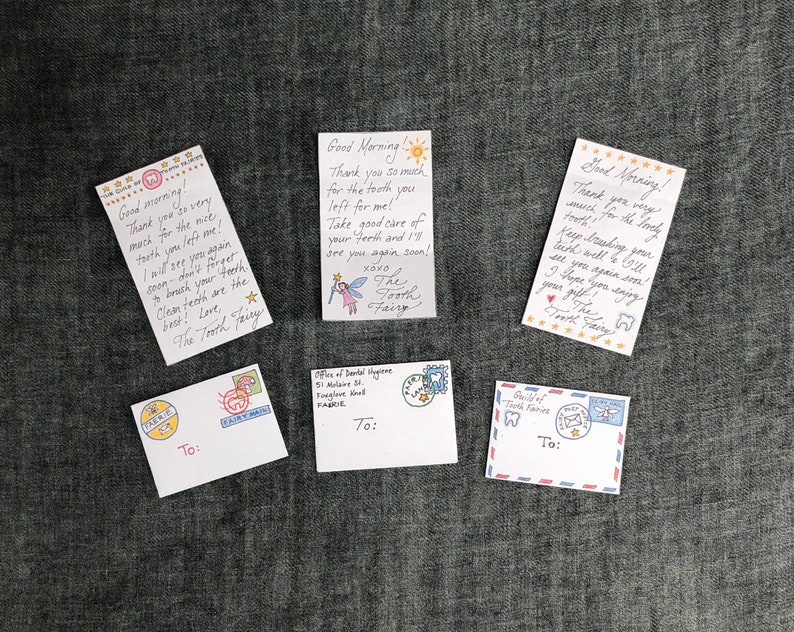 THE GUILD OF TOOTH FAIRIES
Good morning!
Thank you so very
much for the nice
tooth you left me!
I will see you again
soon - don't forget
to brush your teeth.
Clean teeth are the
best! Love,
The Tooth Fairy
Good Morning!
Thank you so much
for the tooth you
left for me!
Take good care of
your teeth and I'll
see you again soon!
xoxo
The
Tooth
Fairy
Good Morning!
Thank you very
much for the lovely
tooth!
Keep brushing your
teeth well & I'll
see you again soon!
I hope you enjoy
your gift!
The
Tooth Fairy
FAERIE
FAIRY MAIL
To:
Office of Dental Hygiene
51 Molaire St.
Foxglove Knoll
FAERIE
To:
Guild of
Tooth Fairies
FAIRY POST
FAIRY MAIL
To: